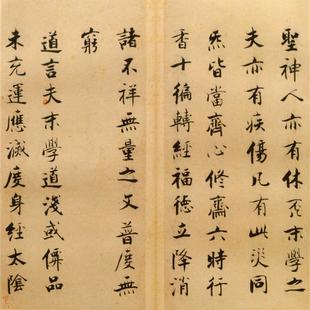 聖神人亦有休否末學之
夫亦有疾傷凡有此災同
炁皆當齊心修齋六時行
香十徧轉經福德立降消
諸不祥無量之文普度無
窮
道言夫末學道淺或僊品
未充運應滅度身經太陰